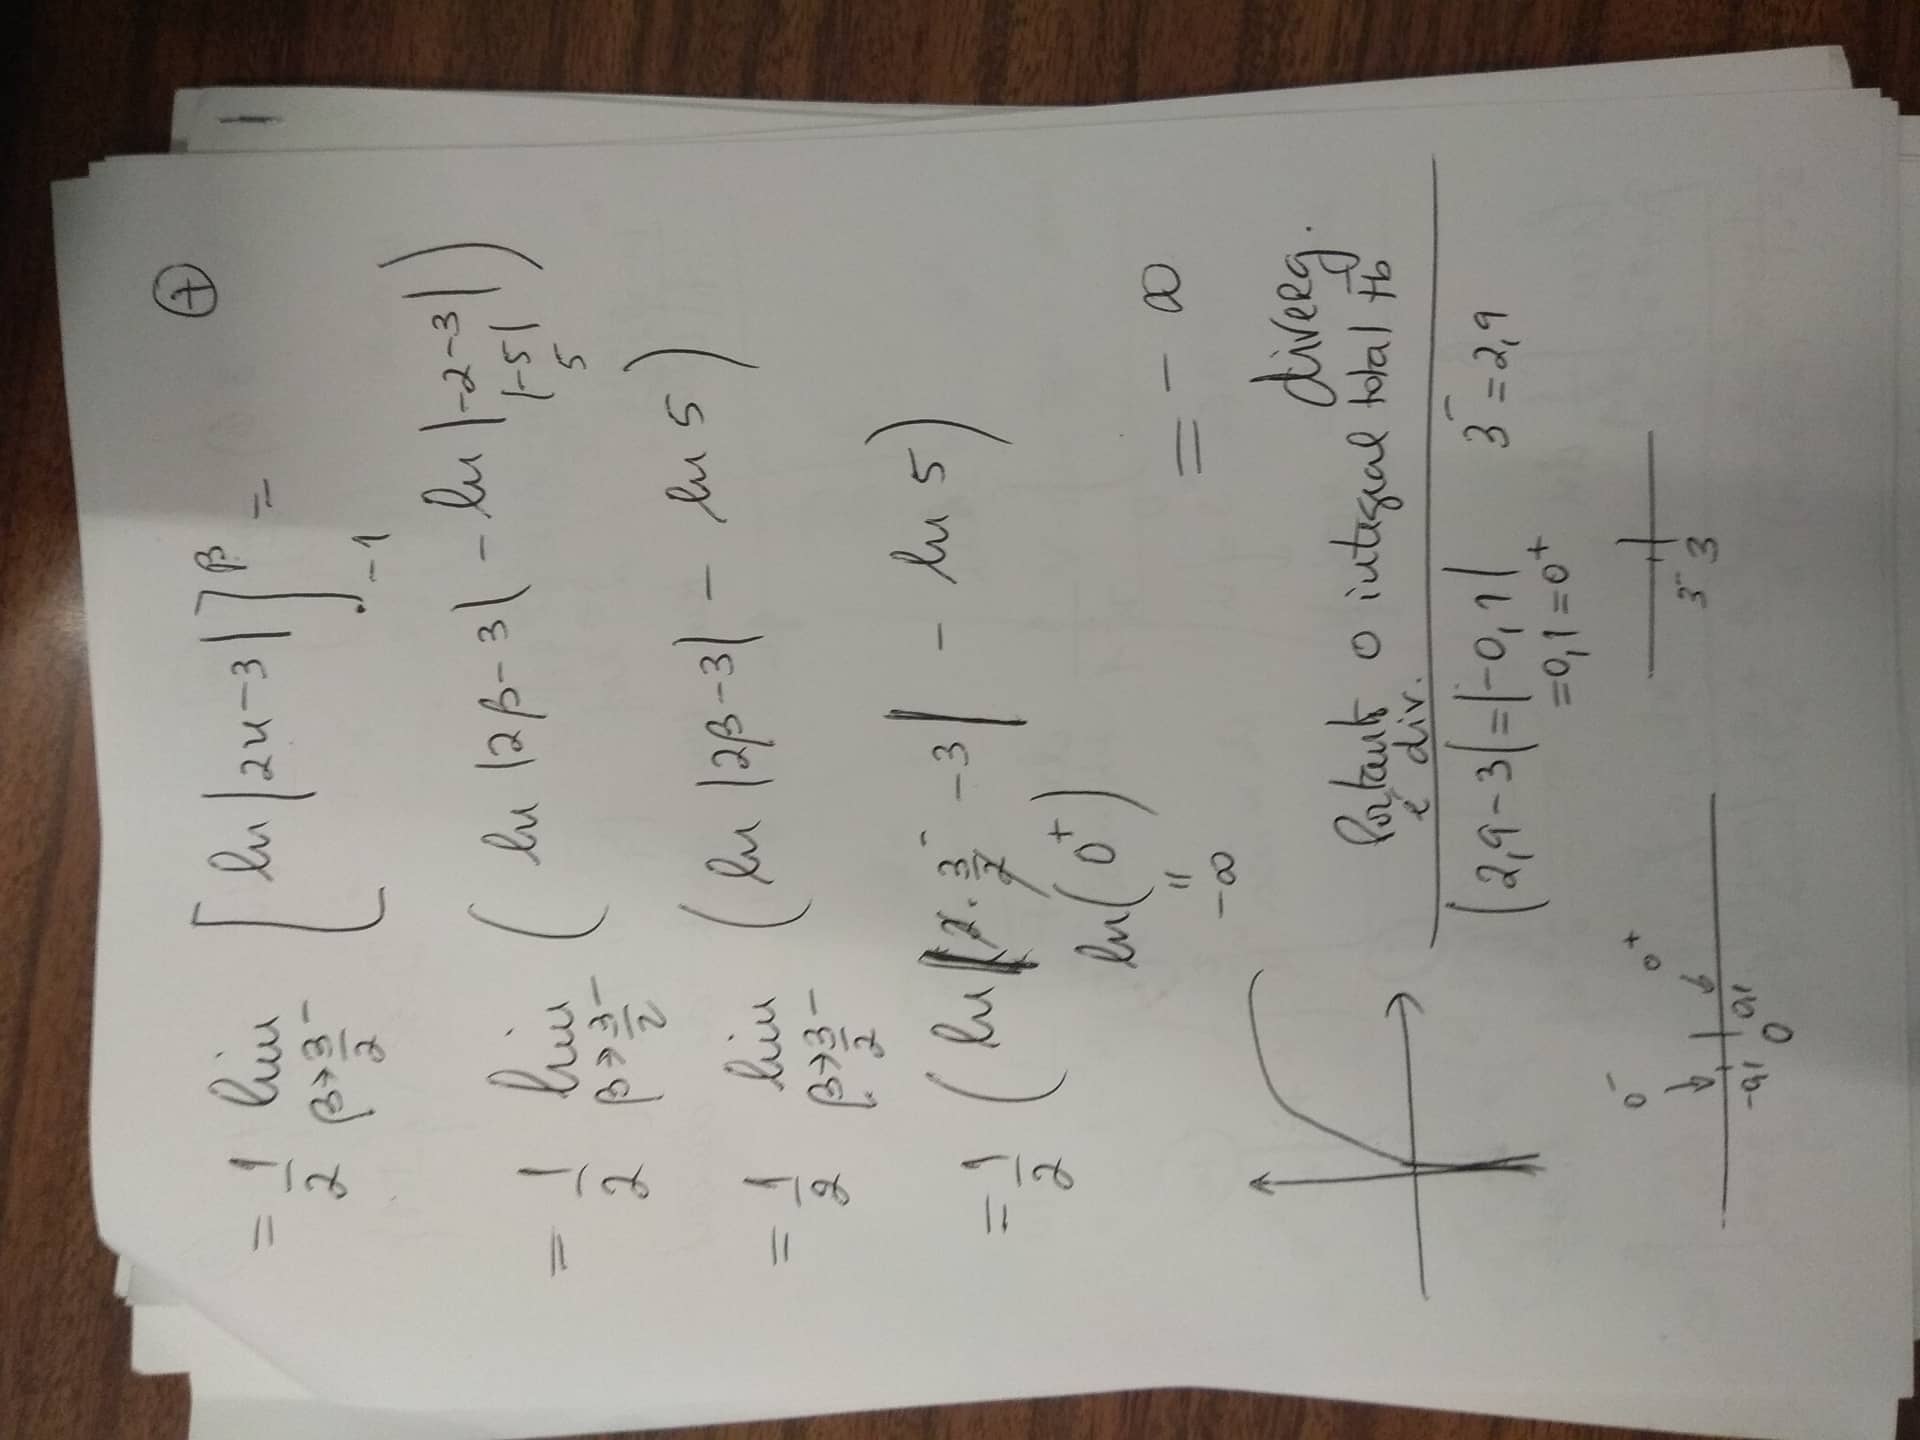 ⊕
= 1/2 lim β→3/2⁻ [ln|2x-3|]^β_-1 =
= 1/2 lim β→3/2⁻ (ln|2β-3| - ln|-2-3|)
|-5|
5
= 1/2 lim β→3/2⁻ (ln|2β-3| - ln 5)
= 1/2 (ln|2·3/2⁻ -3| - ln 5)
ln(0⁺)
=
-∞
= -∞
diverg.
Portanto o integral total tb
é div.
|2,9-3|=|-0,1| 3⁻=2,9
=0,1=0⁺
0⁻ 0⁺
3⁻ 3
-0,1 0 0,1